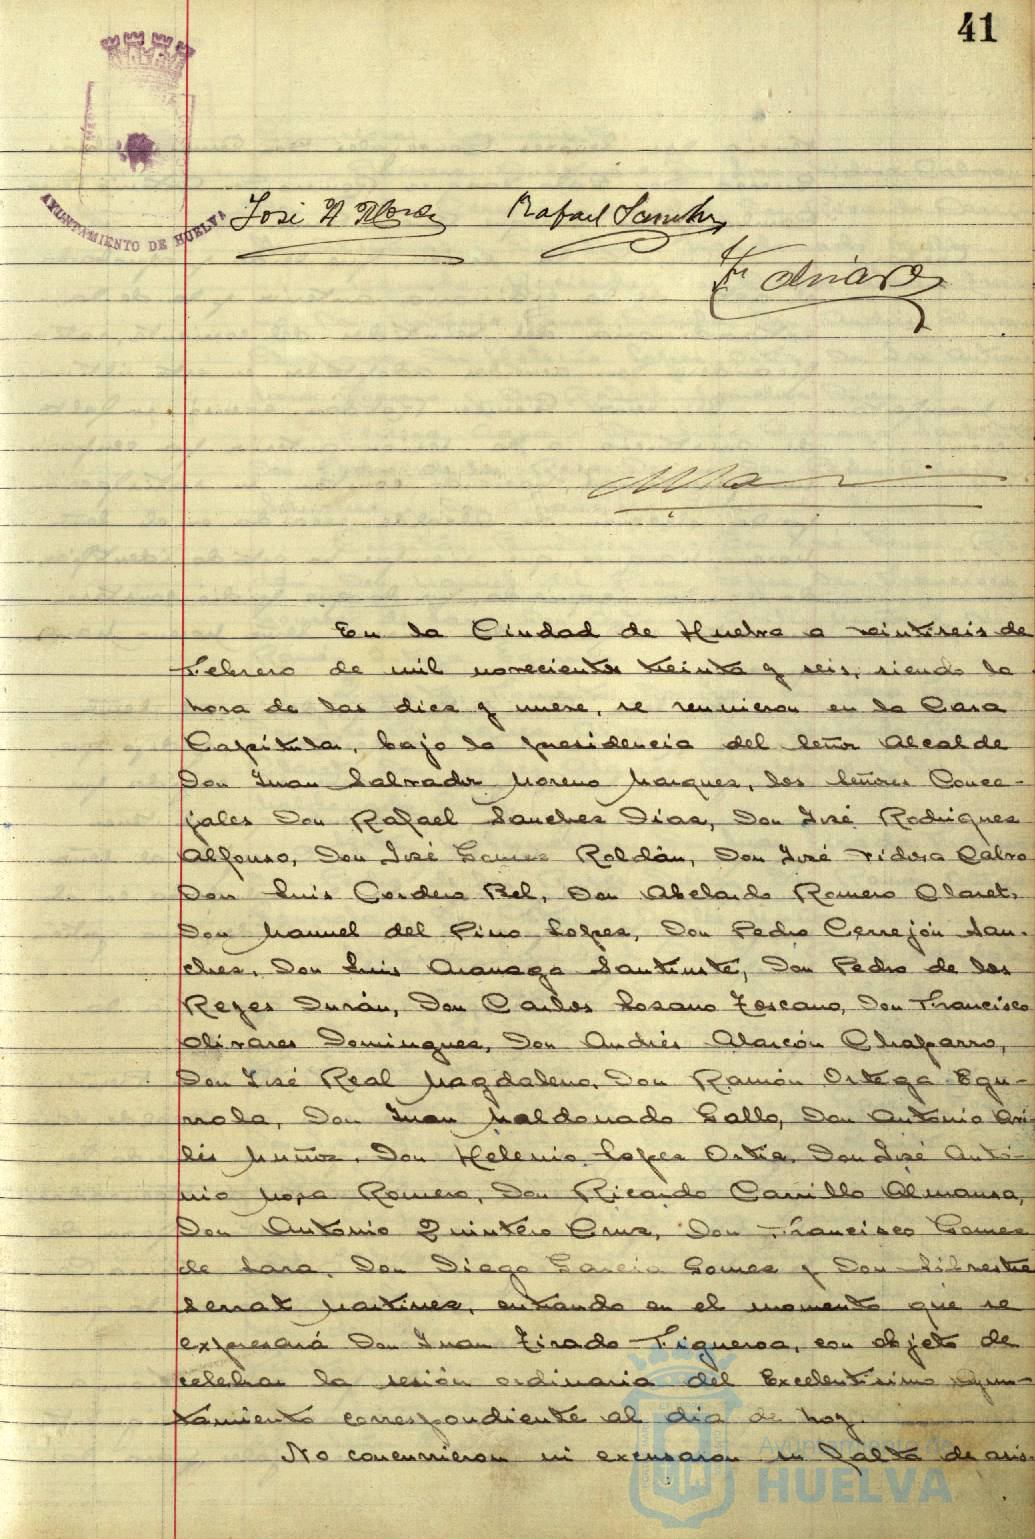 41
AYUNTAMIENTO DE HUELVA
José A Mora
Rafael Sanchez
F Olivares
En la Ciudad de Huelva a veintiseis de
Febrero de mil novecientos treinta y seis, siendo la
hora de las diez y nueve, se reunieron en la Casa
Capitular, bajo la presidencia del Señor Alcalde
Don Juan Salvador Moreno Marquez, los Señores Conce-
jales Don Rafael Sanchez Diaz, Don José Rodriguez
Alfonso, Don José Gomez Roldán, Don José Vidosa Calvo
Don Luis Cordero Bel, Don Abelardo Romero Claret,
Don Manuel del Pino Lopez, Don Pedro Cerrejón San-
chez, Don Luis Aranaga Santuste, Don Pedro de los
Reyes Durán, Don Carlos Lozano Toscano, Don Francisco
Olivares Dominguez, Don Andrés Alarcón Chaparro,
Don José Real Magdaleno, Don Ramón Ortega Egu-
rrola, Don Juan Maldonado Gallo, Don Antonio
Muñoz, Don Helenio Lopez Ortiz, Don José Anto-
nio Mora Romero, Don Ricardo Carrillo Almansa,
Don Antonio Quintero Cruz, Don Francisco Gomez
de Lara, Don Diego Garcia Gomez y Don Silvestre
Serrat Martinez, entrando en el momento que se
expresará Don Juan Tirado Figueroa, con objeto de
celebrar la sesión ordinaria del Excelentisimo Ayun-
tamiento correspondiente al dia de hoy.
No concurrieron ni excusaron su falta de asis-
Ayuntamiento de
HUELVA